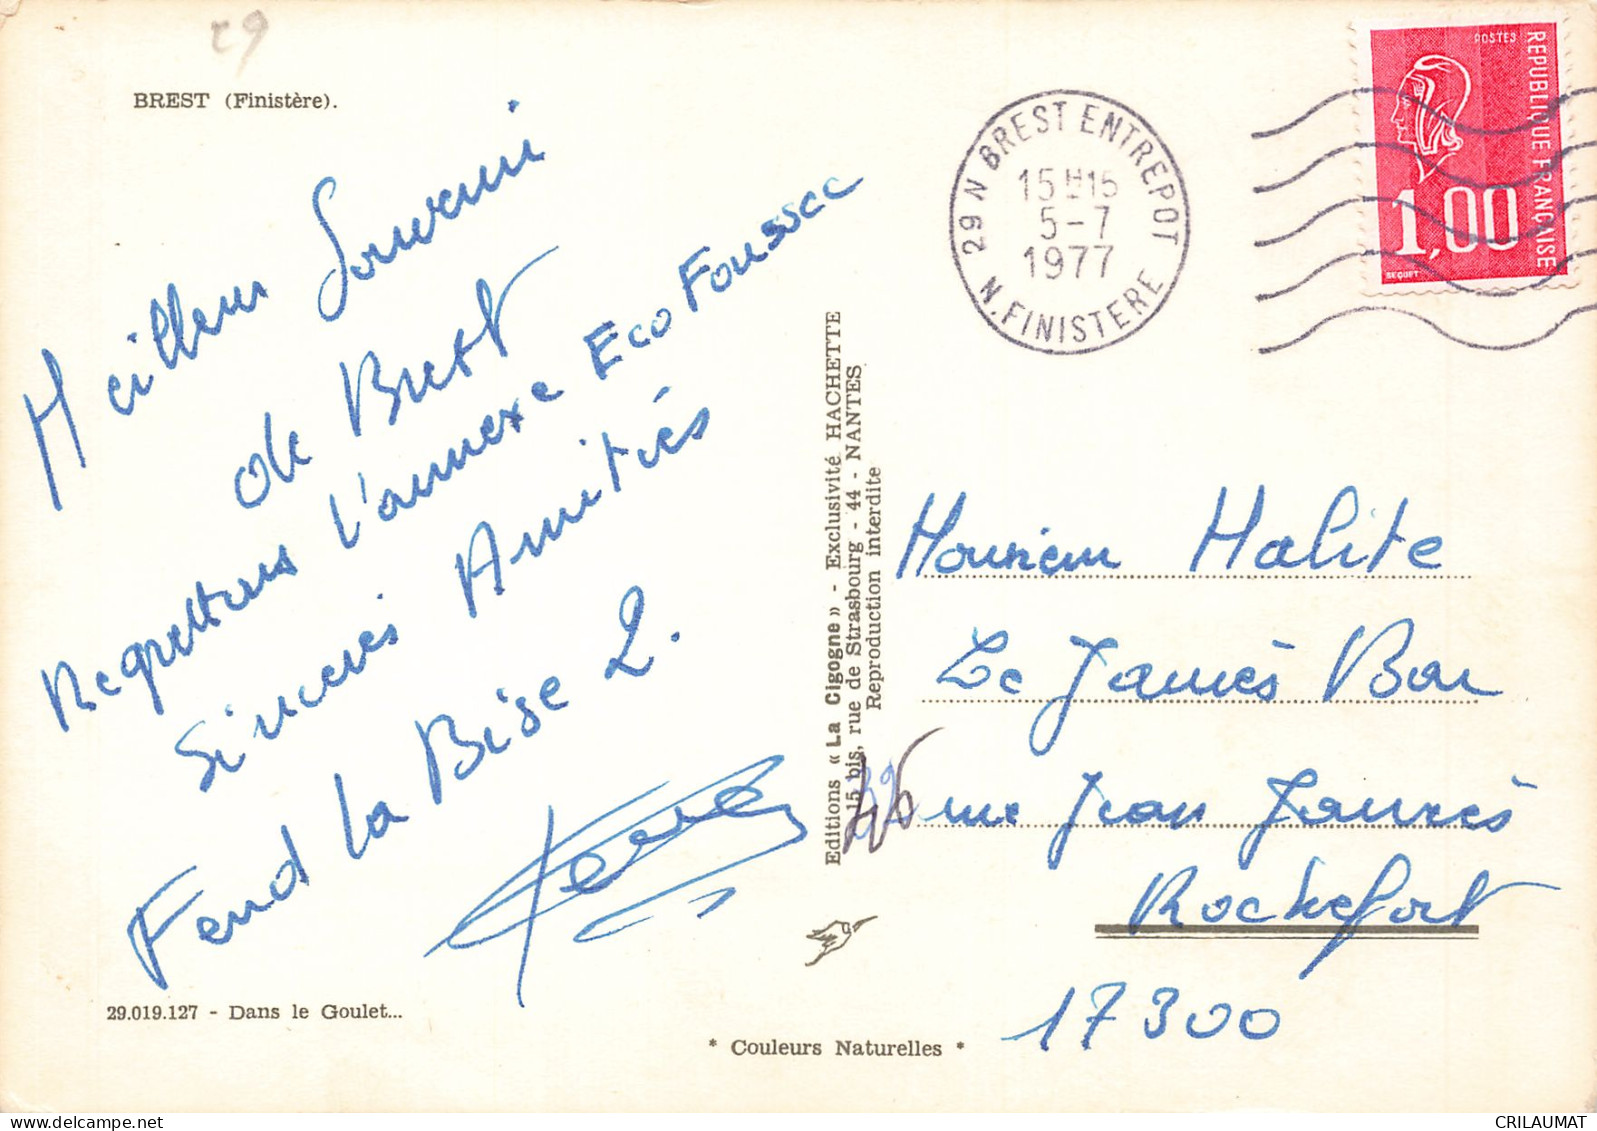 29
BREST (Finistère).
Meilleur Souvenir
de Brest
Regrettons l'annexe Eco Foussec
Sincerès Amitiés
Fend la Bise 2.
29.019.127 - Dans le Goulet...
* Couleurs Naturelles *
Editions « La Cigogne » - Exclusivité HACHETTE
15 bis, rue de Strasbourg - 44 - NANTES
Reproduction interdite
29 N BREST ENTREPOT
15H15
5-7
1977
N. FINISTERE
POSTES
REPUBLIQUE FRANÇAISE
1,00
BEQUET
Monsieur Halite
Le James Bar
rue Jean Jaurès
Rochefort
17300
CRILAUMAT